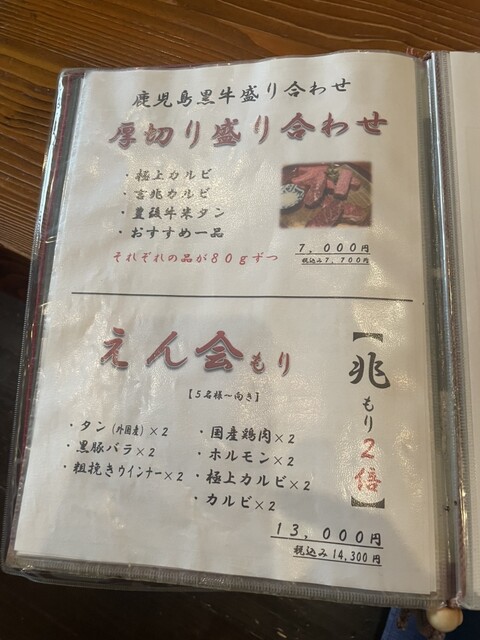 鹿児島黒牛盛り合わせ
厚切り盛り合わせ
・極上カルビ
・吉兆カルビ
・豊後牛米タン
・おすすめ一品
それぞれの品が80gずつ
7,000円
税込み7,700円
えん会もり
【5名様~向き】
【兆もり2倍】
・タン(外国産)×2
・黒豚バラ×2
・粗挽きウインナー×2
・国産鶏肉×2
・ホルモン×2
・極上カルビ×2
・カルビ×2
13,000円
税込み14,300円